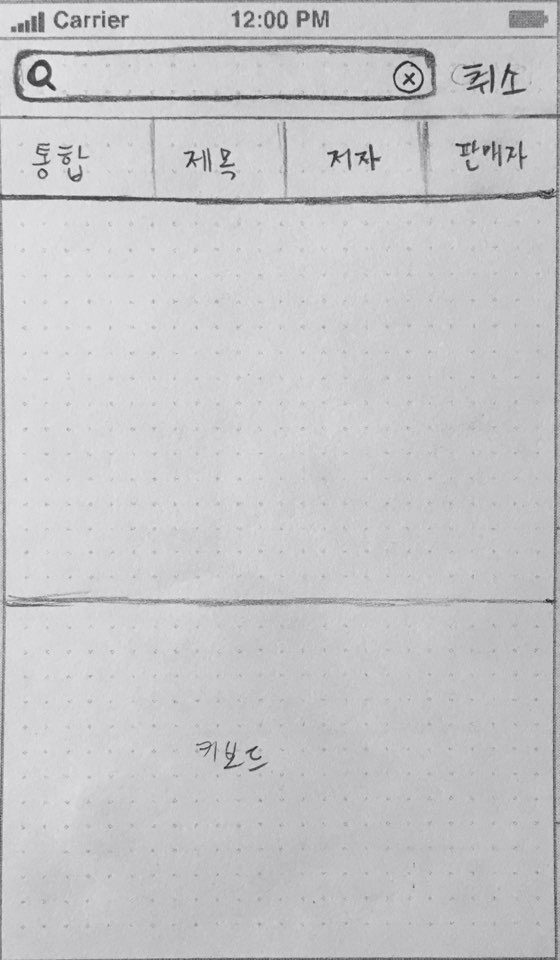 Carrier 12:00 PM
취소
통합 제목 저자 판매자
키보드